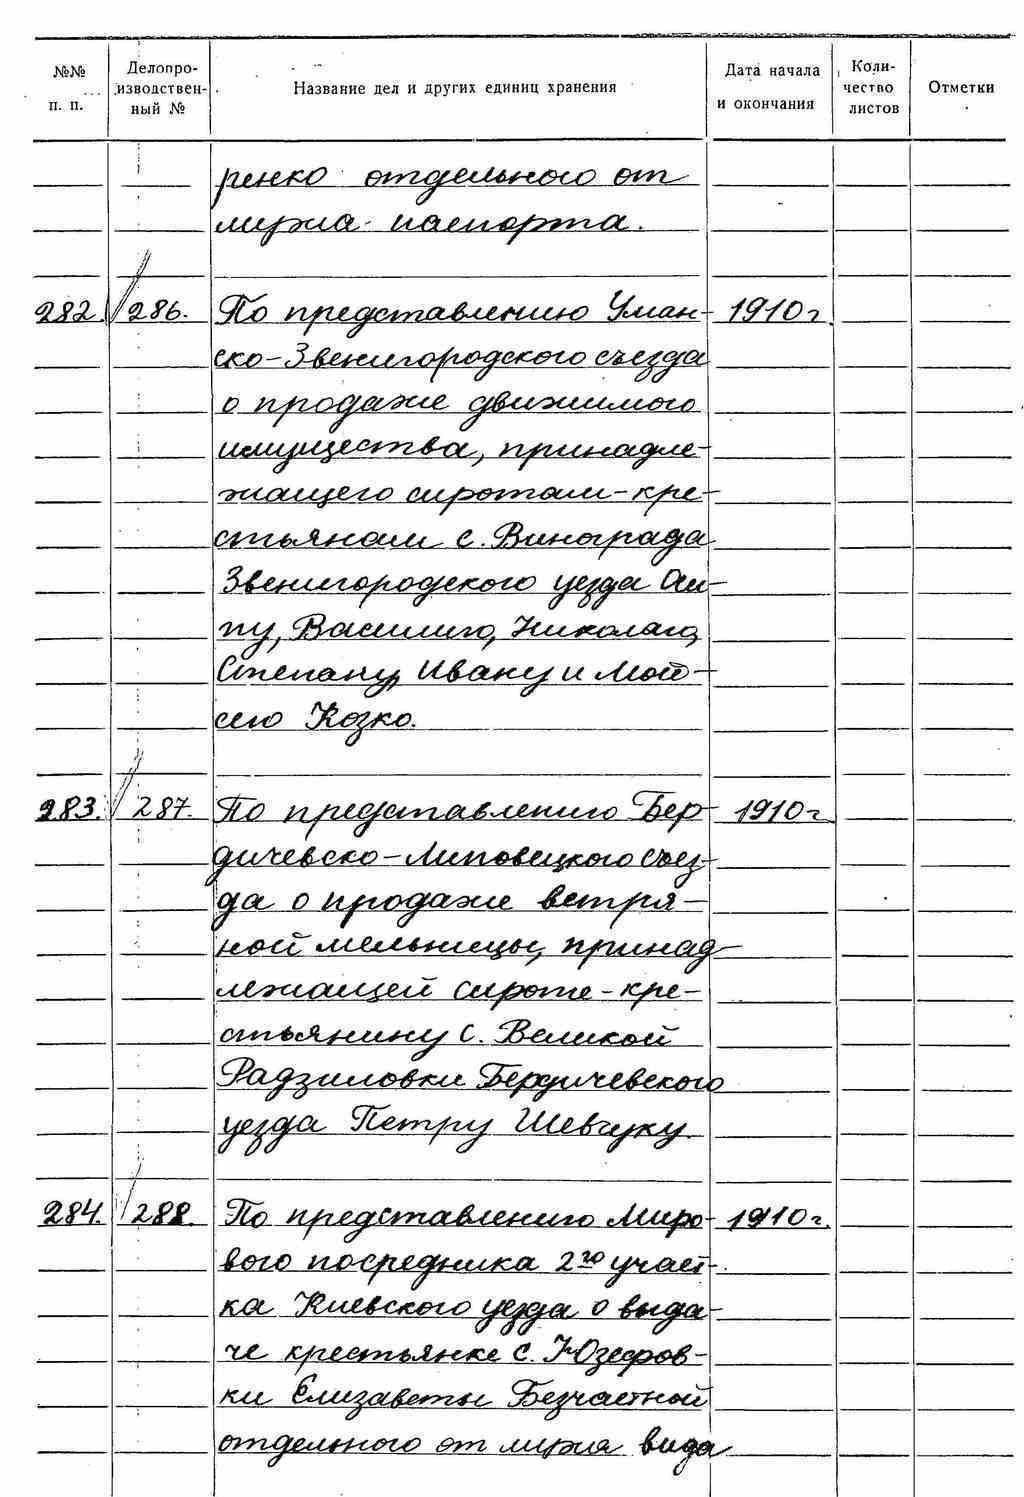 №№ п. п. Делопроизводственный № Название дел и других единиц хранения Дата начала и окончания Количество листов Отметки
ренко отдельного от
мужа паспорта.
282. 286. По представлению Уман- 1910 г.
ско-Звенигородского съезда
о продаже движимого
имущества, принадле-
жащего сиротам-кре-
стьянам с. Винограда
Звенигородского уезда
пу, Василию, Николаю,
Степану, Ивану и Мой-
сею Козко.
283. 287. По представлению Бер- 1910 г.
дичевско-Липовецкого съез-
да о продаже ветря-
ной мельницы, принад
лежащей сироте-кре-
стьянину с. Великой
Радзиловки Бердичевского
уезда Петру Шевчуку.
284. 288. По представлению Миро- 1910 г.
вого посредника 2го участ-
ка Киевского уезда о выда-
че крестьянке с. Юзефов-
ки Елизаветы Безчастной
отдельного от мужа вида